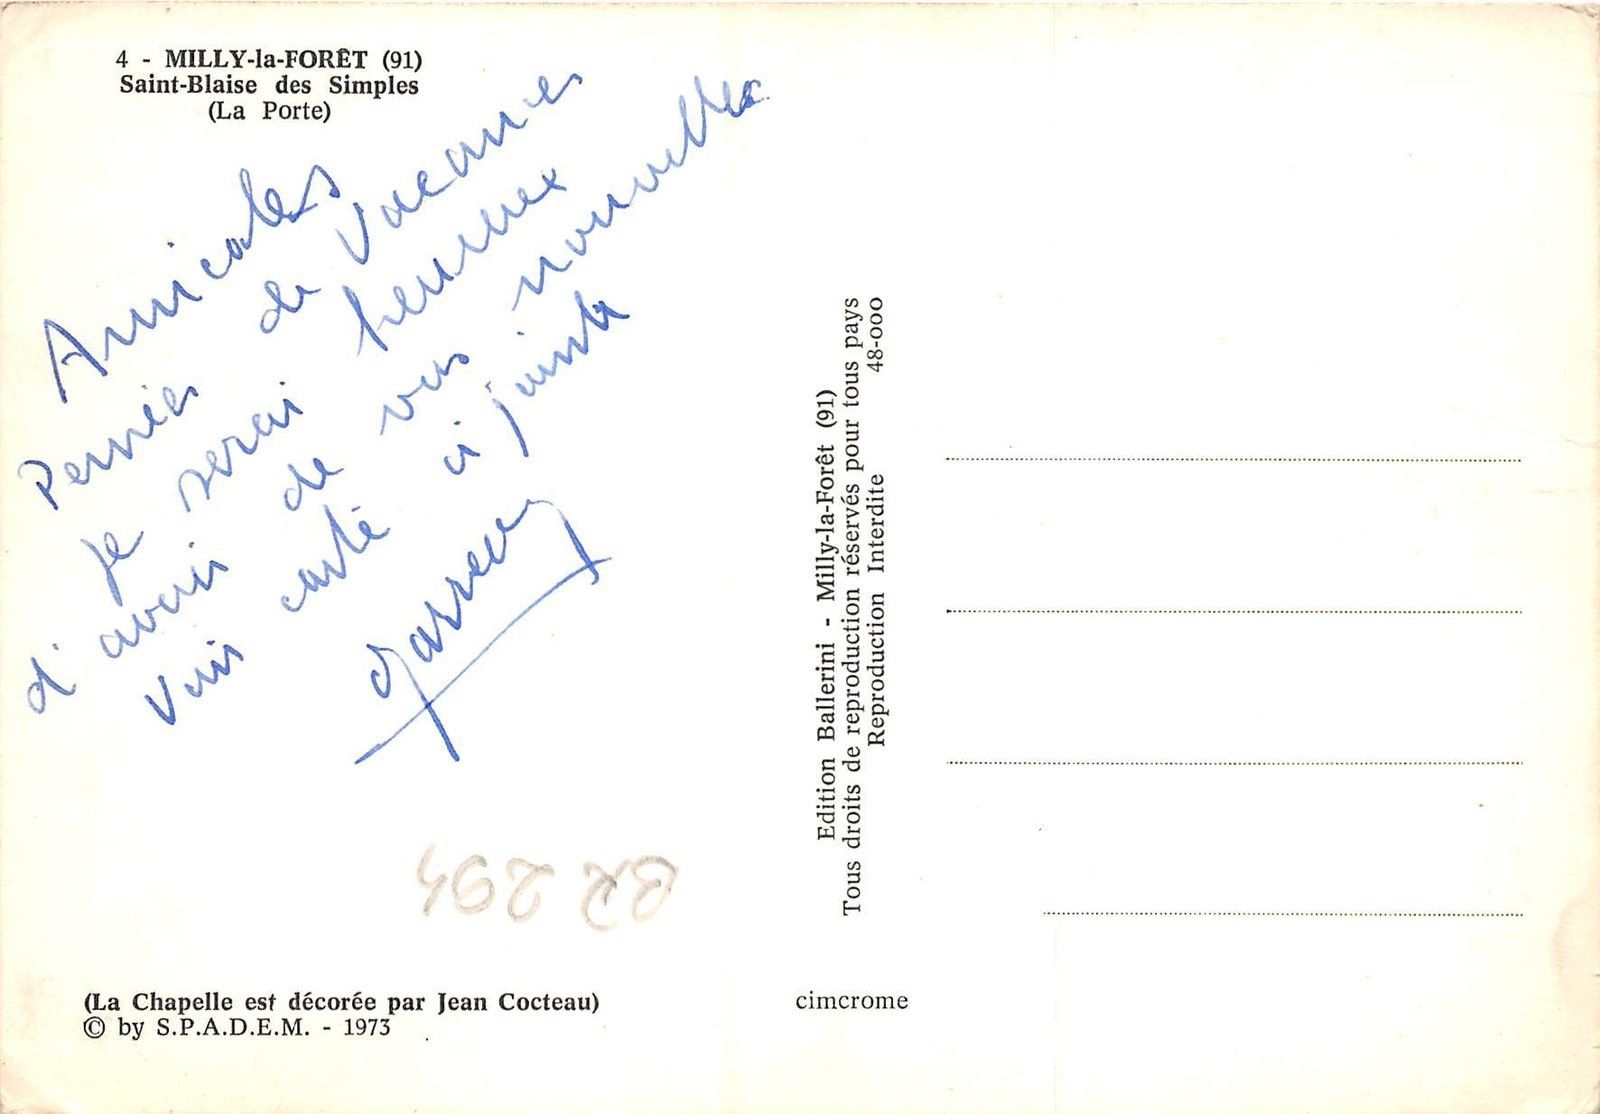 4 - MILLY-la-FORÊT (91)
Saint-Blaise des Simples
(La Porte)
Amicales
de Vacances
je serai heureux
d'avoir de vos nouvelles
Voir carte ci jointe
(La Chapelle est décorée par Jean Cocteau)
© by S.P.A.D.E.M. - 1973
Edition Ballerini - Milly-la-Forêt (91)
Tous droits de reproduction réservés pour tous pays
Reproduction Interdite 48-000
cimcrome
BR 294